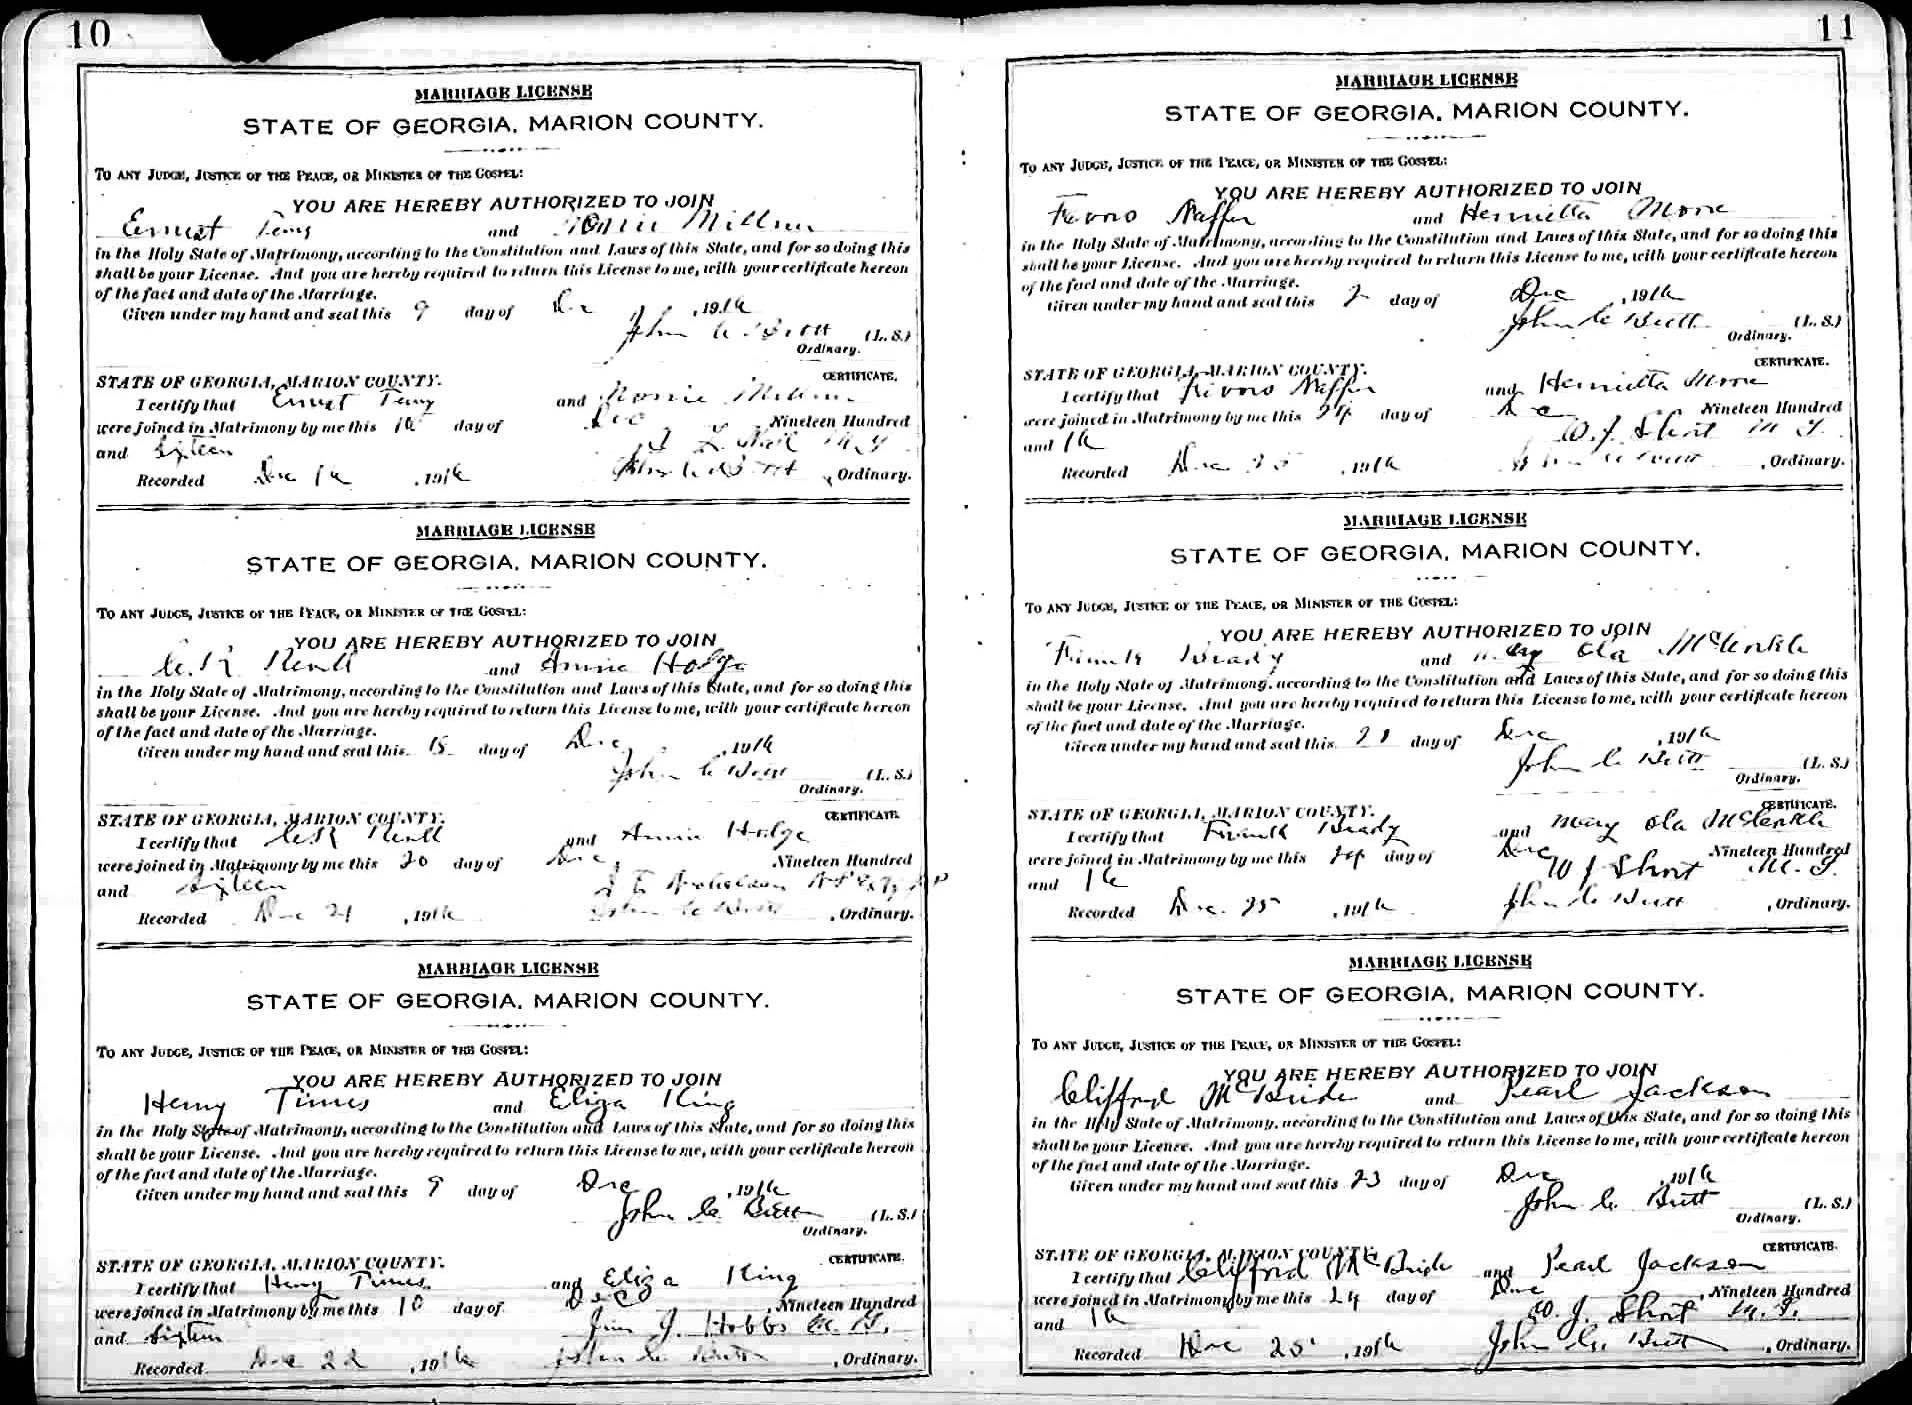 10
MARRIAGE LICENSE
STATE OF GEORGIA, MARION COUNTY.
TO ANY JUDGE, JUSTICE OF THE PEACE, OR MINISTER OF THE GOSPEL:
YOU ARE HEREBY AUTHORIZED TO JOIN
Ernest Terry and Nonie
in the Holy State of Matrimony, according to the Constitution and Laws of this State, and for so doing this
shall be your License. And you are hereby required to return this License to me, with your certificate hereon
of the fact and date of the Marriage.
Given under my hand and seal this 9 day of Dec, 1916
John C Butt (L. S.)
Ordinary.
CERTIFICATE.
STATE OF GEORGIA, MARION COUNTY.
I certify that Ernest Terry and Nonie
were joined in Matrimony by me this day of Dec Nineteen Hundred
and Sixteen M G
Recorded Dec 16, 1916 John C Butt, Ordinary.
MARRIAGE LICENSE
STATE OF GEORGIA, MARION COUNTY.
TO ANY JUDGE, JUSTICE OF THE PEACE, OR MINISTER OF THE GOSPEL:
YOU ARE HEREBY AUTHORIZED TO JOIN
C. R and Annie Hodge
in the Holy State of Matrimony, according to the Constitution and Laws of this State, and for so doing this
shall be your License. And you are hereby required to return this License to me, with your certificate hereon
of the fact and date of the Marriage.
Given under my hand and seal this 15 day of Dec, 1916
John C Butt (L. S.)
Ordinary.
CERTIFICATE.
STATE OF GEORGIA, MARION COUNTY.
I certify that C R and Annie Hodge
were joined in Matrimony by me this 20 day of Dec Nineteen Hundred
and Sixteen Nicholson
Recorded Dec 21, 1916 John C Butt, Ordinary.
MARRIAGE LICENSE
STATE OF GEORGIA, MARION COUNTY.
TO ANY JUDGE, JUSTICE OF THE PEACE, OR MINISTER OF THE GOSPEL:
YOU ARE HEREBY AUTHORIZED TO JOIN
Henry Times and Eliza King
in the Holy State of Matrimony, according to the Constitution and Laws of this State, and for so doing this
shall be your License. And you are hereby required to return this License to me, with your certificate hereon
of the fact and date of the Marriage.
Given under my hand and seal this 9 day of Dec, 1916
John C. Butt (L. S.)
Ordinary.
CERTIFICATE.
STATE OF GEORGIA, MARION COUNTY.
I certify that Henry Times and Eliza King
were joined in Matrimony by me this 10 day of Dec, Nineteen Hundred
and Sixteen Jim J. Hobbs M. G.
Recorded Dec 22, 1916 John C. Butt, Ordinary.
11
MARRIAGE LICENSE
STATE OF GEORGIA, MARION COUNTY.
TO ANY JUDGE, JUSTICE OF THE PEACE, OR MINISTER OF THE GOSPEL:
YOU ARE HEREBY AUTHORIZED TO JOIN
and Henrietta Moore
in the Holy State of Matrimony, according to the Constitution and Laws of this State, and for so doing this
shall be your License. And you are hereby required to return this License to me, with your certificate hereon
of the fact and date of the Marriage.
Given under my hand and seal this day of Dec, 1916
John C Butt (L. S.)
Ordinary.
CERTIFICATE.
STATE OF GEORGIA, MARION COUNTY.
I certify that and Henrietta Moore
were joined in Matrimony by me this 24 day of Dec Nineteen Hundred
and 16 W. J. Short M G.
Recorded Dec 25, 1916 John C Butt, Ordinary.
MARRIAGE LICENSE
STATE OF GEORGIA, MARION COUNTY.
TO ANY JUDGE, JUSTICE OF THE PEACE, OR MINISTER OF THE GOSPEL:
YOU ARE HEREBY AUTHORIZED TO JOIN
Frank Brady and Mary Ola McCorkle
in the Holy State of Matrimony, according to the Constitution and Laws of this State, and for so doing this
shall be your License. And you are hereby required to return this License to me, with your certificate hereon
of the fact and date of the Marriage.
Given under my hand and seal this 21 day of Dec, 1916
John C. Butt (L. S.)
Ordinary.
CERTIFICATE.
STATE OF GEORGIA, MARION COUNTY.
I certify that Frank Brady and Mary Ola McCorkle
were joined in Matrimony by me this 24 day of Dec Nineteen Hundred
and 16 W J Short M. G.
Recorded Dec. 25, 1916 John C Butt, Ordinary.
MARRIAGE LICENSE
STATE OF GEORGIA, MARION COUNTY.
TO ANY JUDGE, JUSTICE OF THE PEACE, OR MINISTER OF THE GOSPEL:
YOU ARE HEREBY AUTHORIZED TO JOIN
Clifford McBride and Pearl Jackson
in the Holy State of Matrimony, according to the Constitution and Laws of this State, and for so doing this
shall be your License. And you are hereby required to return this License to me, with your certificate hereon
of the fact and date of the Marriage.
Given under my hand and seal this 23 day of Dec, 1916
John C. Butt (L. S.)
Ordinary.
CERTIFICATE.
STATE OF GEORGIA, MARION COUNTY.
I certify that Clifford McBride and Pearl Jackson
were joined in Matrimony by me this 24 day of Dec, Nineteen Hundred
and 16 W. J. Short M. G.
Recorded Dec 25, 1916 John C. Butt, Ordinary.